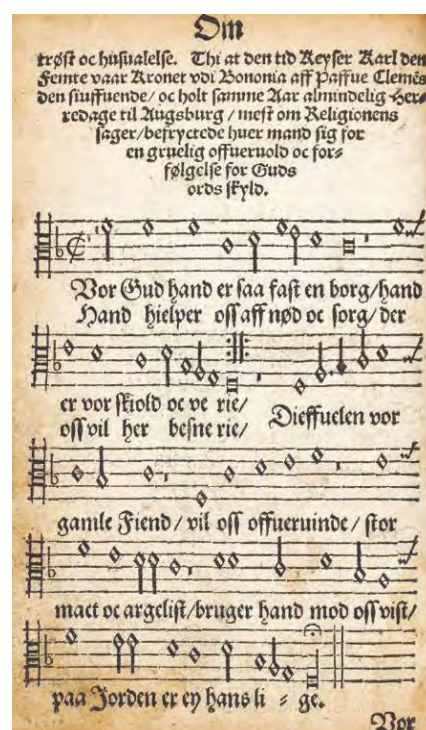 Om
trøst oc husualelse. Thi at den tid Keyser Karl den
Femte vaar Kronet vdi Bononia aff Paffue Clemẽs
den siuffuende/ oc holt samme Aar almindelig Her-
redage til Augsburg / mest om Religionens
sager/befryctede huer mand sig for
en gruelig offueruold oc for-
følgelse for Guds
ords skyld.
Vor Gud hand er saa fast en borg/hand
Hand hielper oss aff nød oc sorg/ der
er vor skiold oc ve rie/
oss vil her besne rie/ Dieffuelen vor
gamle Fiend/ vil oss offueruinde/ stor
mact oc argelist/bruger hand mod oss vist/
paa Jorden er ey hans li - ge.
Vor